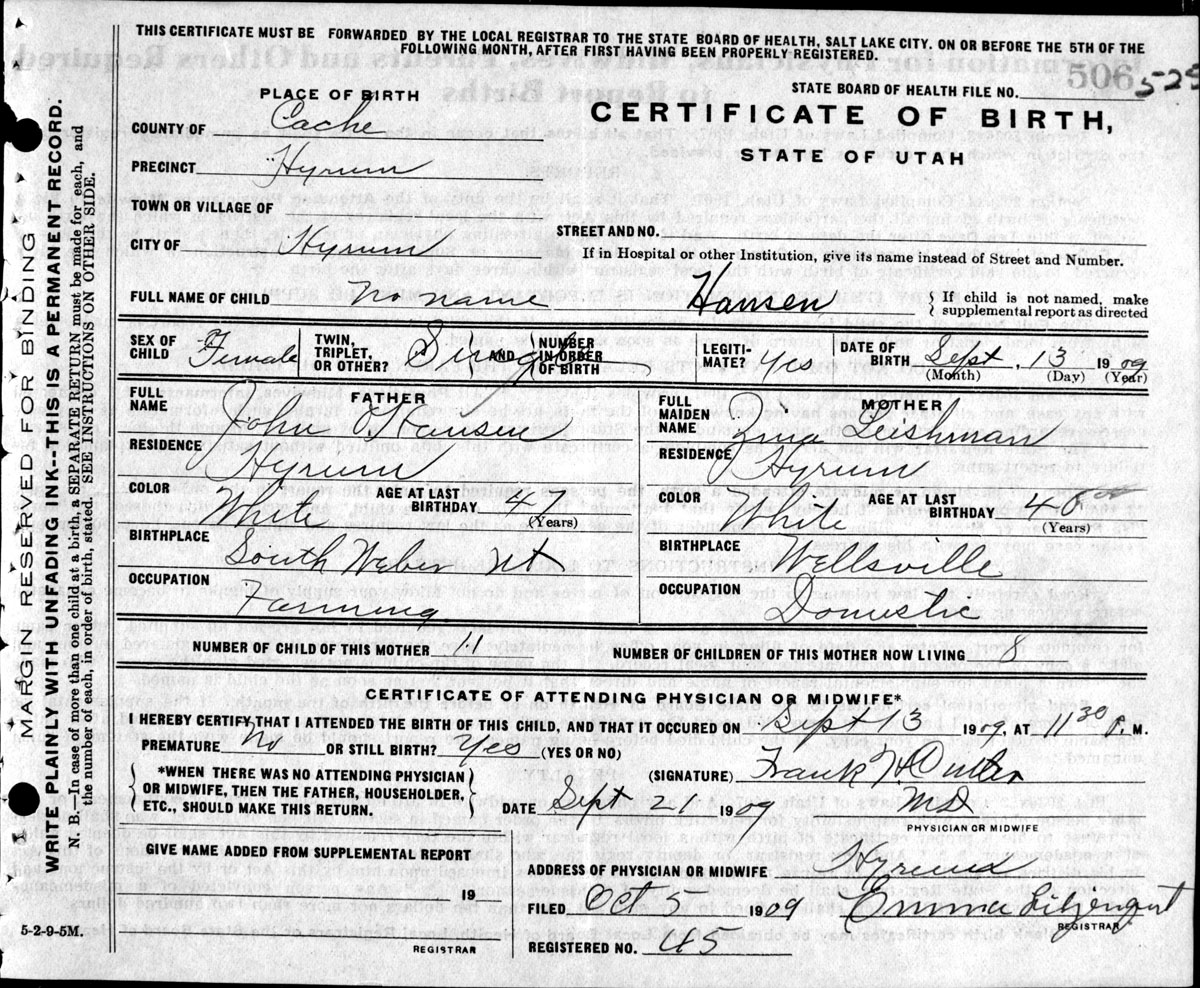 THIS CERTIFICATE MUST BE FORWARDED BY THE LOCAL REGISTRAR TO THE STATE BOARD OF HEALTH, SALT LAKE CITY. ON OR BEFORE THE 5TH OF THE
FOLLOWING MONTH, AFTER FIRST HAVING BEEN PROPERLY REGISTERED.
STATE BOARD OF HEALTH FILE NO. 506 525
PLACE OF BIRTH
CERTIFICATE OF BIRTH,
STATE OF UTAH
COUNTY OF Cache
PRECINCT Hyrum
TOWN OR VILLAGE OF
STREET AND NO.
CITY OF Hyrum
If in Hospital or other Institution, give its name instead of Street and Number.
FULL NAME OF CHILD No name Hansen
If child is not named, make
supplemental report as directed
SEX OF CHILD Female
TWIN, TRIPLET, OR OTHER? Single AND NUMBER IN ORDER OF BIRTH
LEGITI-MATE? Yes
BIRTH Sept. 13 1909
(Month) (Day) (Year)
FATHER
FULL NAME John Hansen
RESIDENCE Hyrum
COLOR White AGE AT LAST BIRTHDAY 47
(Years)
BIRTHPLACE South Weber Ut
OCCUPATION Farming
MOTHER
FULL MAIDEN NAME Leishman
RESIDENCE Hyrum
COLOR White AGE AT LAST BIRTHDAY 40
(Years)
BIRTHPLACE Wellsville
OCCUPATION Domestic
NUMBER OF CHILD OF THIS MOTHER 11
NUMBER OF CHILDREN OF THIS MOTHER NOW LIVING 8
CERTIFICATE OF ATTENDING PHYSICIAN OR MIDWIFE*
I HEREBY CERTIFY THAT I ATTENDED THE BIRTH OF THIS CHILD, AND THAT IT OCCURED ON Sept 13 1909, AT 11 30 P. M.
PREMATURE No OR STILL BIRTH? Yes (YES OR NO)
*WHEN THERE WAS NO ATTENDING PHYSICIAN
OR MIDWIFE, THEN THE FATHER, HOUSEHOLDER,
ETC., SHOULD MAKE THIS RETURN.
(SIGNATURE) Frank
MD
PHYSICIAN OR MIDWIFE
DATE Sept 21 1909
GIVE NAME ADDED FROM SUPPLEMENTAL REPORT
ADDRESS OF PHYSICIAN OR MIDWIFE Hyrum
19
REGISTRAR
FILED Oct 3 1909
Emma
REGISTRAR
REGISTERED NO. 45
5-2-9-5M.
MARGIN RESERVED FOR BINDING
WRITE PLAINLY WITH UNFADING INK--THIS IS A PERMANENT RECORD.
N. B.—In case of more than one child at a birth, a SEPARATE RETURN must be made for each, and
the number of each, in order of birth, stated. SEE INSTRUCTIONS ON OTHER SIDE.